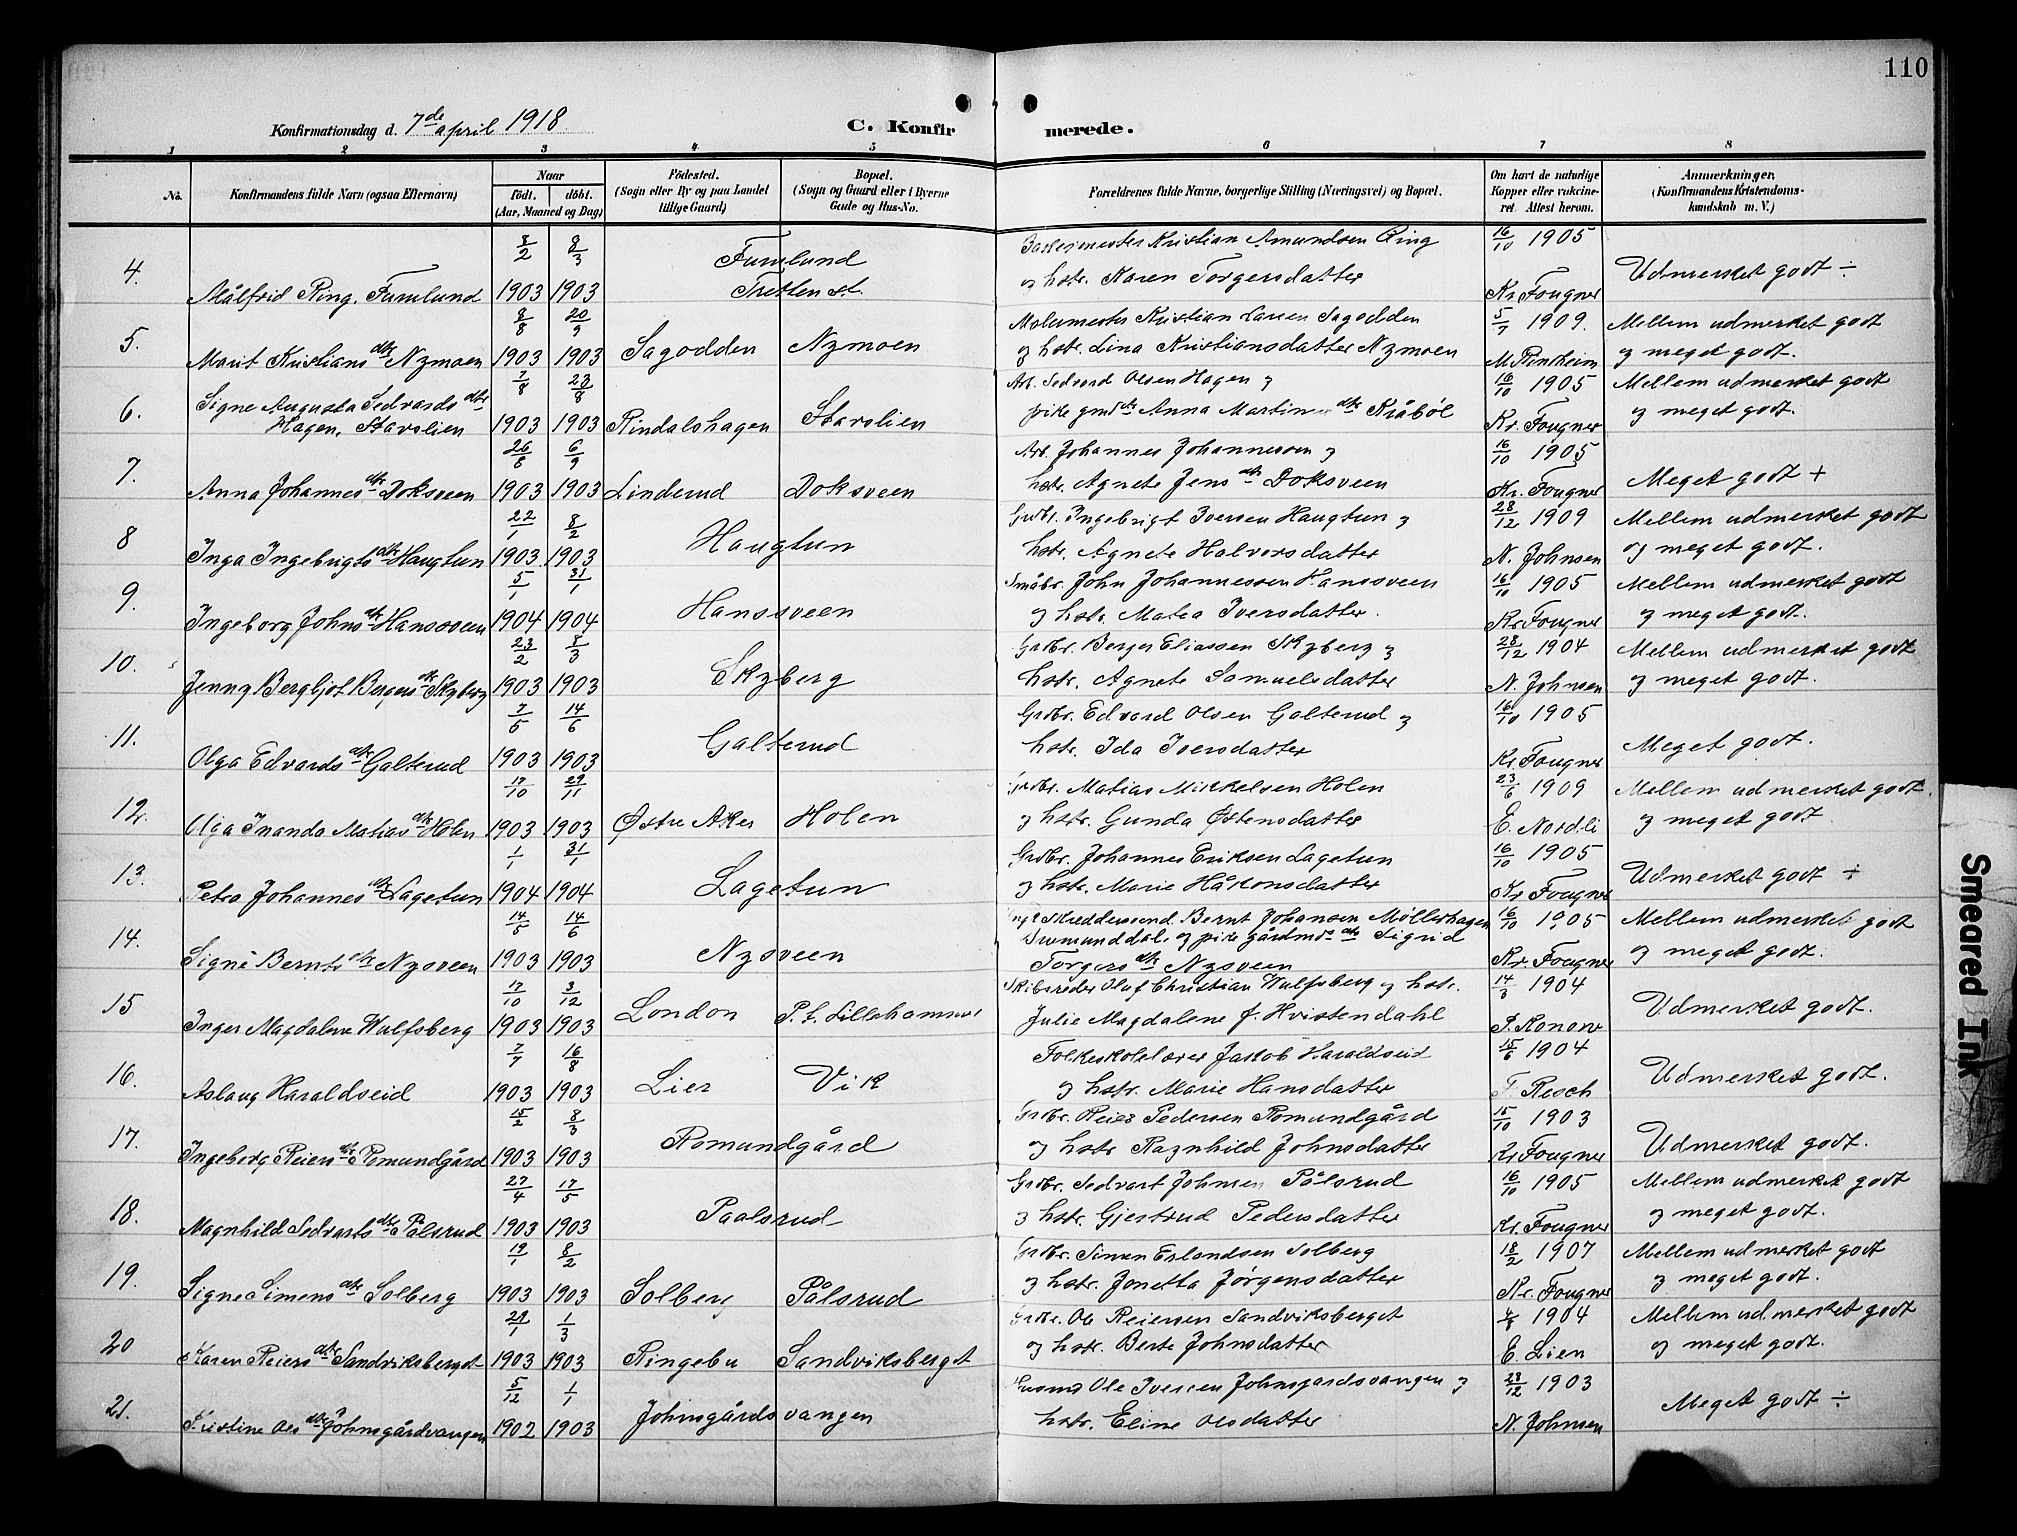 110
Konfirmationsdag d. 7de april 1918
C. Konfirmerede.
1 2 3 4 5 6 7 8
No. Konfirmandens fulde Navn (ogsaa Efternavn) Naar født. døbt. (Aar, Maaned og Dag) Fødested. (Sogn eller By og paa Landet tillige Gaard) Bopæl. (Sogn og Gaard eller i Byerne Gade og Hus-No. Forældrenes fulde Navne, borgerlige Stilling (Næringsvei) og Bopæl. Om havt de naturlige Kopper eller vakcineret. Attest herom. Anmerkninger. (Konfirmandens Kristendomskundskab m. V.)
8/2 8/3 Furulund Kristian Amundsen Ring 16/10 1905
4. Målfrid Ring, Furulund 1903 1903 Tretten st. og hstr. Karen Torgersdatter Kr. Fougner Udmerket godt ÷
8/8 20/9 Malermester Kristian Larsen Sagodden 5/7 1909. Mellem udmerket godt
5. Marit Kristiansdtr Nymoen 1903 1903 Sagodden Nymoen og hstr. Lina Kristiansdatter Nymoen M. Rinsheim og meget godt.
7/8 23/8 Arb. Sedvard Olsen Hagen og 16/10 1905 Mellem udmerket godt
6. Signe Augusta Sedvardsdtr Hagen, Stavslien 1903 1903 Rindalshagen Stavslien pike Anna Martine dtr Kråbøl Kr. Fougner og meget godt.
26/8 6/9 Arb. Johannes Johannessen og 16/10 1905
7. Anna Johannesdtr Doksveen 1903 1903 Linderud Doksveen hstr. Agnete Jensdtr Doksveen Kr. Fougner Meget godt +
22/1 8/2 Grdbr. Ingebrigt Iversen Haugtun og 28/12 1909 Mellem udmerket godt
8 Inga Ingebrigtsdtr Haugtun 1903 1903 Haugtun hstr. Agnete Halvorsdatter N. Johnsen og meget godt.
5/1 31/1 Småbr. John Johannessen Hansveen 16/10 1905 Mellem udmerket godt
9. Ingeborg Johnsdtr Hanssveen 1904 1904 Hanssveen og hstr. Matea Iversdatter. Kr. Fougner og meget godt.
23/2 8/3 Grdbr. Berger Eliassen Skyberg og 28/12 1904 Mellem udmerket godt
10. Jenny Bergljot Bergersdtr Skyberg 1903 1903 Skyberg hstr. Agnete Samuelsdatter N. Johnsen og meget godt.
7/5 14/6 Grdbr. Edvard Olsen Galterud og 16/10 1905
11. Olga Edvardsdtr Galterud 1903 1903 Galterud hstr. Ida Iversdatter Kr. Fougner Meget godt.
17/10 29/11 Grdbr. Matias Mikkelsen Holen 23/6 1909 Mellem udmerket godt
12. Olga Inanda Matiasdtr Holen 1903 1903 Østre Aker Holen og hstr. Gunda Østensdatter E. Nordli og meget godt.
1/1 31/1 Grdbr. Johannes Eriksen Lagetun 16/10 1905
13. Petra Johannesdtr Lagetun 1904 1904 Lagetun og hstr. Marie Håkonsdatter Kr. Fougner Udmerket godt ÷
14/5 14/6 Skreddersvend. Bernt Johansen Møllerhagen 16/10 1905 Mellem udmerket godt
14. Signe Berntsdtr Nysveen 1903 1903 Nysveen Brumunddal. og pike gårdmds dtr Sigrid Torgersdtr Nysveen Kr. Fougner og meget godt.
17/10 3/12 Skibsreder Oluf Christian Wulfsberg og hstr. 14/3 1904
15 Inger Magdalene Wulfsberg 1903 1903 London P. t. Lillehammer Julie Magdalene f. Hvistendahl P. Konow Udmerket godt.
7/7 16/8 Folkeskolelærer Jakob Haraldseid 15/6 1904
16. Aslaug Haraldseid 1903 1903 Lier Vik og hstr. Marie Hansdatter T. Resch Udmerket godt.
15/2 8/3 Grdbr. Reier Pedersen Romundgård 15/10 1903
17. Ingeborg Reiersdtr Romundgård 1903 1903 Romundgård og hstr Ragnhild Johnsdatter Kr Fougner Udmerket godt.
27/4 17/5 Grdbr. Sedvart Johnsen Pålsrud 16/10 1905 Mellem udmerket godt
18. Magnhild Sedvartsdtr Pålsrud 1903 1903 Paalsrud og hstr. Gjertrud Pedersdatter Kr. Fougner og meget godt.
19/1 8/2 Grdbr. Simen Erlandsen Solberg 18/2 1907 Mellem udmerket godt
19. Signe Simensdtr Solberg 1903 1903 Solberg Pålsrud og hstr. Jonetta Jørgensdatter Kr. Fougner og meget godt.
29/1 1/3 Grdbr. Ole Reiersen Sandviksberget 1904 Mellem udmerket godt
20 Karen Reiersdtr Sandviksberget 1903 1903 Ringebu Sandviksberget og hstr. Berte Johnsdatter E. Lien og meget godt.
5/12 1/1 Ole Iversen Johnsgardsvangen og 28/12 1903
21. Kristine Olsdtr Johnsgårdsvangen 1902 1903 Johnsgårdsvangen hstr. Eline Olsdatter N. Johnsen Meget godt ÷
Smeared Ink